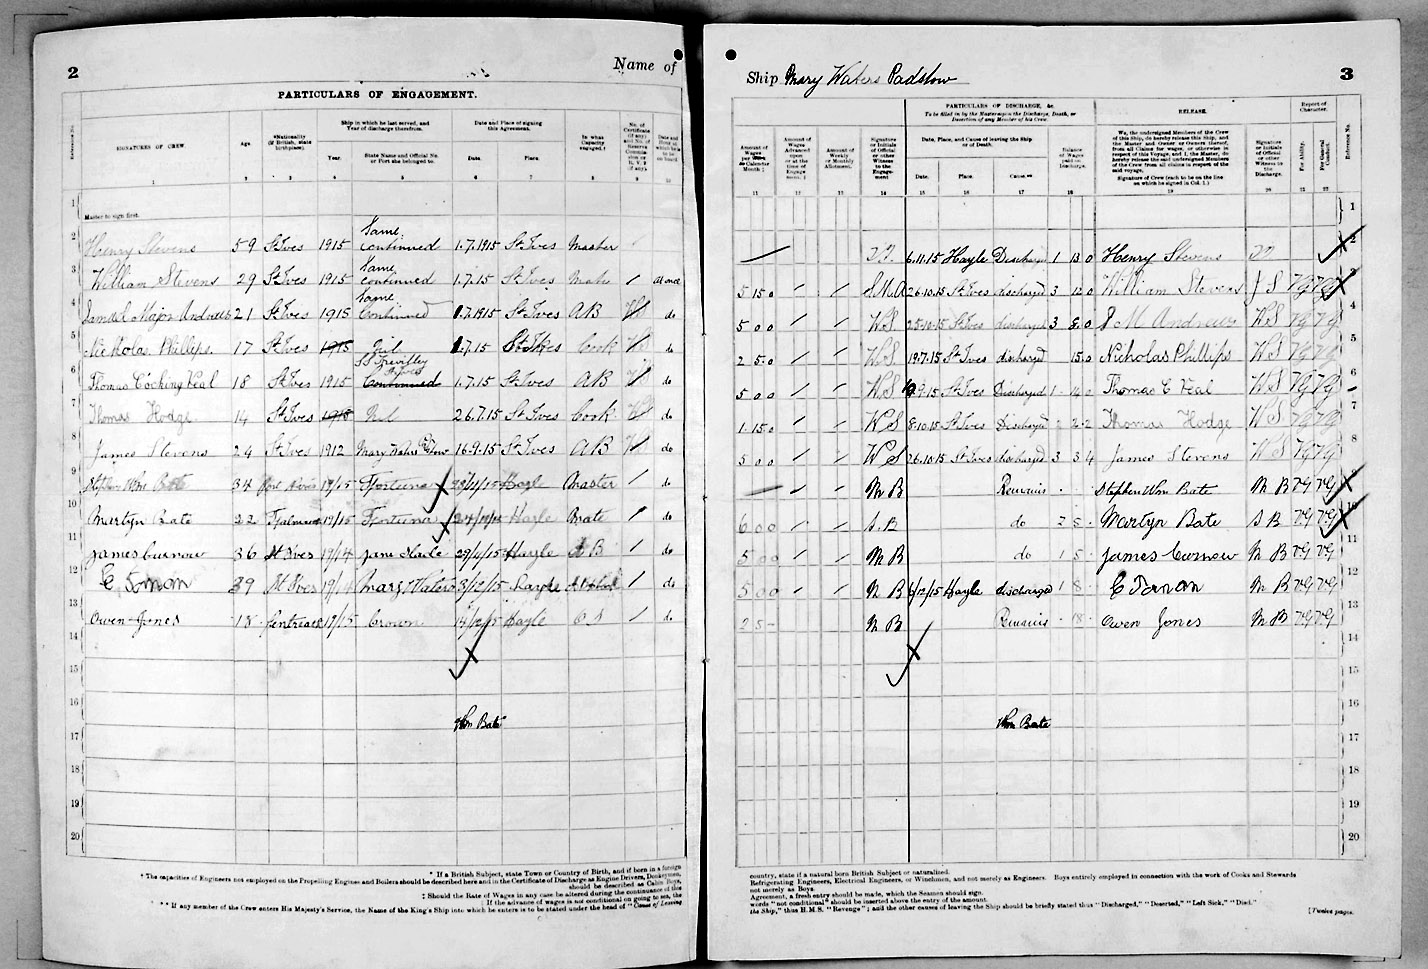 2
Name of
PARTICULARS OF ENGAGEMENT.
SIGNATURES OF CREW.
Age
*Nationality (if British, state birthplace).
Ship in which he last served, and Year of discharge therefrom.
Year.
State Name and Official No. or Port she belonged to.
Date and Place of signing this Agreement.
Date.
Place.
In what Capacity engaged.†
No. of Certificate (if any) and No. of Reserve Commission or R.V.2 (if any).
1 2 3 4 5 6 7 8 9 10
1
Master to sign first.
2 Henry Stevens 59 St Ives 1915 Same continued 1.7.1915 St Ives Master
3 William Stevens 29 St Ives 1915 Same continued 1.7.15 St Ives Mate at once
4 Samuel Major Andrews 21 St Ives 1915 Same Continued 1.7.1915 St Ives AB WS do
5 Nicholas Phillips 17 St Ives 1915 Nil 1.7.15 St Ives Cook WS do
6 Thomas Cocking Veal 18 St Ives 1915 Continued 1.7.15 St Ives AB WS do
7 Thomas Hodge 14 St Ives 1915 Nil 26.7.15 St Ives Cook WS do
8 James Stevens 24 St Ives 1912 Mary Waters Padstow 16.9.15 St Ives AB WS do
9 Stephen Wm Bate 34 1915 Fortuna Hayle Master do
10 Martyn Bate 22 Falmouth 1915 Fortuna Hayle Mate do
11 James Curnow 36 St Ives 1914 Jane Hayle AB do
12 39 St Ives 1914 Mary Waters 3/12/15 Hayle do
13 Owen Jones 18 1915 Crown 14/12/15 Hayle OS do
14
15
16
Wm Bate
17
18
19
20
* If a British Subject, state Town or Country of Birth, and if born in a foreign
† The capacities of Engineers not employed on the Propelling Engines and Boilers should be described here and in the Certificate of Discharge as Engine Drivers, Donkeymen,
should be described as Cabin Boys,
‡ Should the Rate of Wages in any case be altered during the continuance of this
If the advance of wages is not conditional on going to sea, the
** If any member of the Crew enters His Majesty's Service, the Name of the King's Ship into which he enters is to be stated under the head of "Cause of Leaving
Ship Mary Waters Padstow
3
PARTICULARS OF DISCHARGE, &c.
To be filled in by the Master upon the Discharge, Death, or Desertion of any Member of his Crew.
RELEASE.
Report of Character.
Amount of Wages per Week or Calendar Month ‡
Amount of Wages Advanced upon or at the time of Engagement.‡
Amount of Weekly or Monthly Allotment.
Signature or Initials of Official or other Witness to the Engagement
Date, Place, and Cause of leaving the Ship or of Death.
Date.
Place.
Cause.**
Balance of Wages paid on Discharge.
We, the undersigned Members of the Crew of this Ship, do hereby release this Ship, and the Master and Owner or Owners thereof, from all Claims for wages, or otherwise in respect of this Voyage, and I, the Master, do hereby release the undersigned Members of the Crew from all claims in respect of the said voyage.
Signature of Crew (each to be on the line on which he signed in Col. 1.)
Signature or Initials of Official or other Witness to the Discharge.
For Ability.
For General Conduct.
Reference No.
11 12 13 14 15 16 17 18 19 20 21 22
1
6.11.15 Hayle Discharged 1 13 0 Henry Stevens 2
5 15 0 S.M.A 26.10.15 St Ives discharged 3 12 0 William Stevens J S VG VG 3
5 0 0 W.S 25.10.15 St Ives discharged 3 S M Andrews W.S VG VG 4
2 5 0 W.S 19.7.15 St Ives discharged 15 0 Nicholas Phillips W S VG VG 5
5 0 0 W S 9.15 St Ives Discharged Thomas C Veal W S VG VG 6
1 15 0 W S 8.10.15 St Ives Discharged 2 2 Thomas Hodge W S VG VG 7
5 0 0 W S 26.10.15 St Ives discharged 3 3 4 James Stevens W S VG VG 8
M B Remains Stephen Wm Bate M B VG VG 9
6 0 0 S.B do 2 5 Martyn Bate S B VG VG 10
5 0 0 M B do 1 5 James Curnow M B VG VG 11
5 0 0 M B 12/15 Hayle discharged 1 8 M B VG VG 12
2 5 M B Remains 18 Owen Jones M B VG VG 13
14
15
16
Wm Bate
17
18
19
20
country, state if a natural born British Subject or naturalized.
Refrigerating Engineers, Electrical Engineers, or Winchmen, and not merely as Engineers. Boys entirely employed in connection with the work of Cooks and Stewards
not merely as Boys.
Agreement, a fresh entry should be made, which the Seamen should sign.
words "not conditional" should be inserted above the entry of the amount.
the Ship," thus H.M.S. "Revenge"; and the other causes of leaving the Ship should be briefly stated thus "Discharged," "Deserted," "Left Sick," "Died."
[Twelve pages.